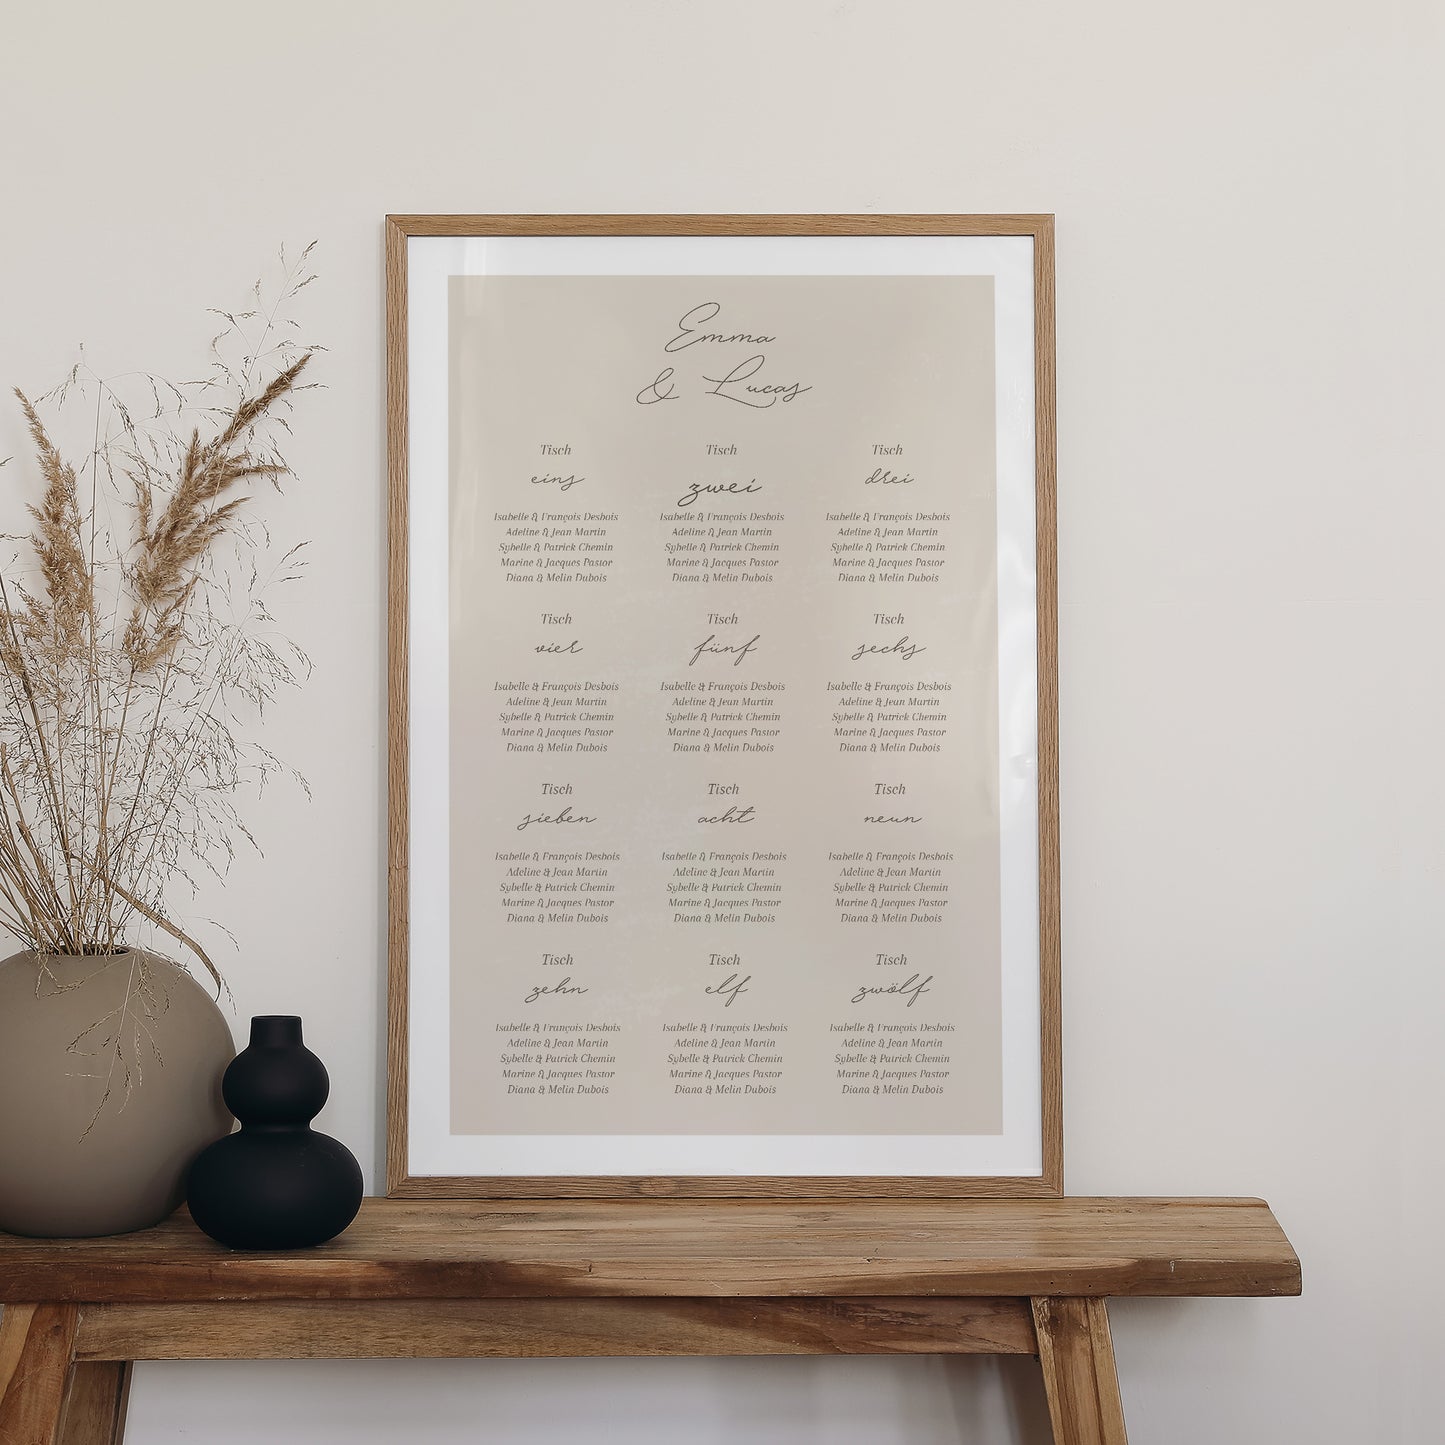 Emma
& Lucas
Tisch
eins
Isabelle & François Desbois
Adeline & Jean Martin
Sybelle & Patrick Chemin
Marine & Jacques Pastor
Diana & Melin Dubois
Tisch
zwei
Isabelle & François Desbois
Adeline & Jean Martin
Sybelle & Patrick Chemin
Marine & Jacques Pastor
Diana & Melin Dubois
Tisch
drei
Isabelle & François Desbois
Adeline & Jean Martin
Sybelle & Patrick Chemin
Marine & Jacques Pastor
Diana & Melin Dubois
Tisch
vier
Isabelle & François Desbois
Adeline & Jean Martin
Sybelle & Patrick Chemin
Marine & Jacques Pastor
Diana & Melin Dubois
Tisch
fünf
Isabelle & François Desbois
Adeline & Jean Martin
Sybelle & Patrick Chemin
Marine & Jacques Pastor
Diana & Melin Dubois
Tisch
sechs
Isabelle & François Desbois
Adeline & Jean Martin
Sybelle & Patrick Chemin
Marine & Jacques Pastor
Diana & Melin Dubois
Tisch
sieben
Isabelle & François Desbois
Adeline & Jean Martin
Sybelle & Patrick Chemin
Marine & Jacques Pastor
Diana & Melin Dubois
Tisch
acht
Isabelle & François Desbois
Adeline & Jean Martin
Sybelle & Patrick Chemin
Marine & Jacques Pastor
Diana & Melin Dubois
Tisch
neun
Isabelle & François Desbois
Adeline & Jean Martin
Sybelle & Patrick Chemin
Marine & Jacques Pastor
Diana & Melin Dubois
Tisch
zehn
Isabelle & François Desbois
Adeline & Jean Martin
Sybelle & Patrick Chemin
Marine & Jacques Pastor
Diana & Melin Dubois
Tisch
elf
Isabelle & François Desbois
Adeline & Jean Martin
Sybelle & Patrick Chemin
Marine & Jacques Pastor
Diana & Melin Dubois
Tisch
zwölf
Isabelle & François Desbois
Adeline & Jean Martin
Sybelle & Patrick Chemin
Marine & Jacques Pastor
Diana & Melin Dubois